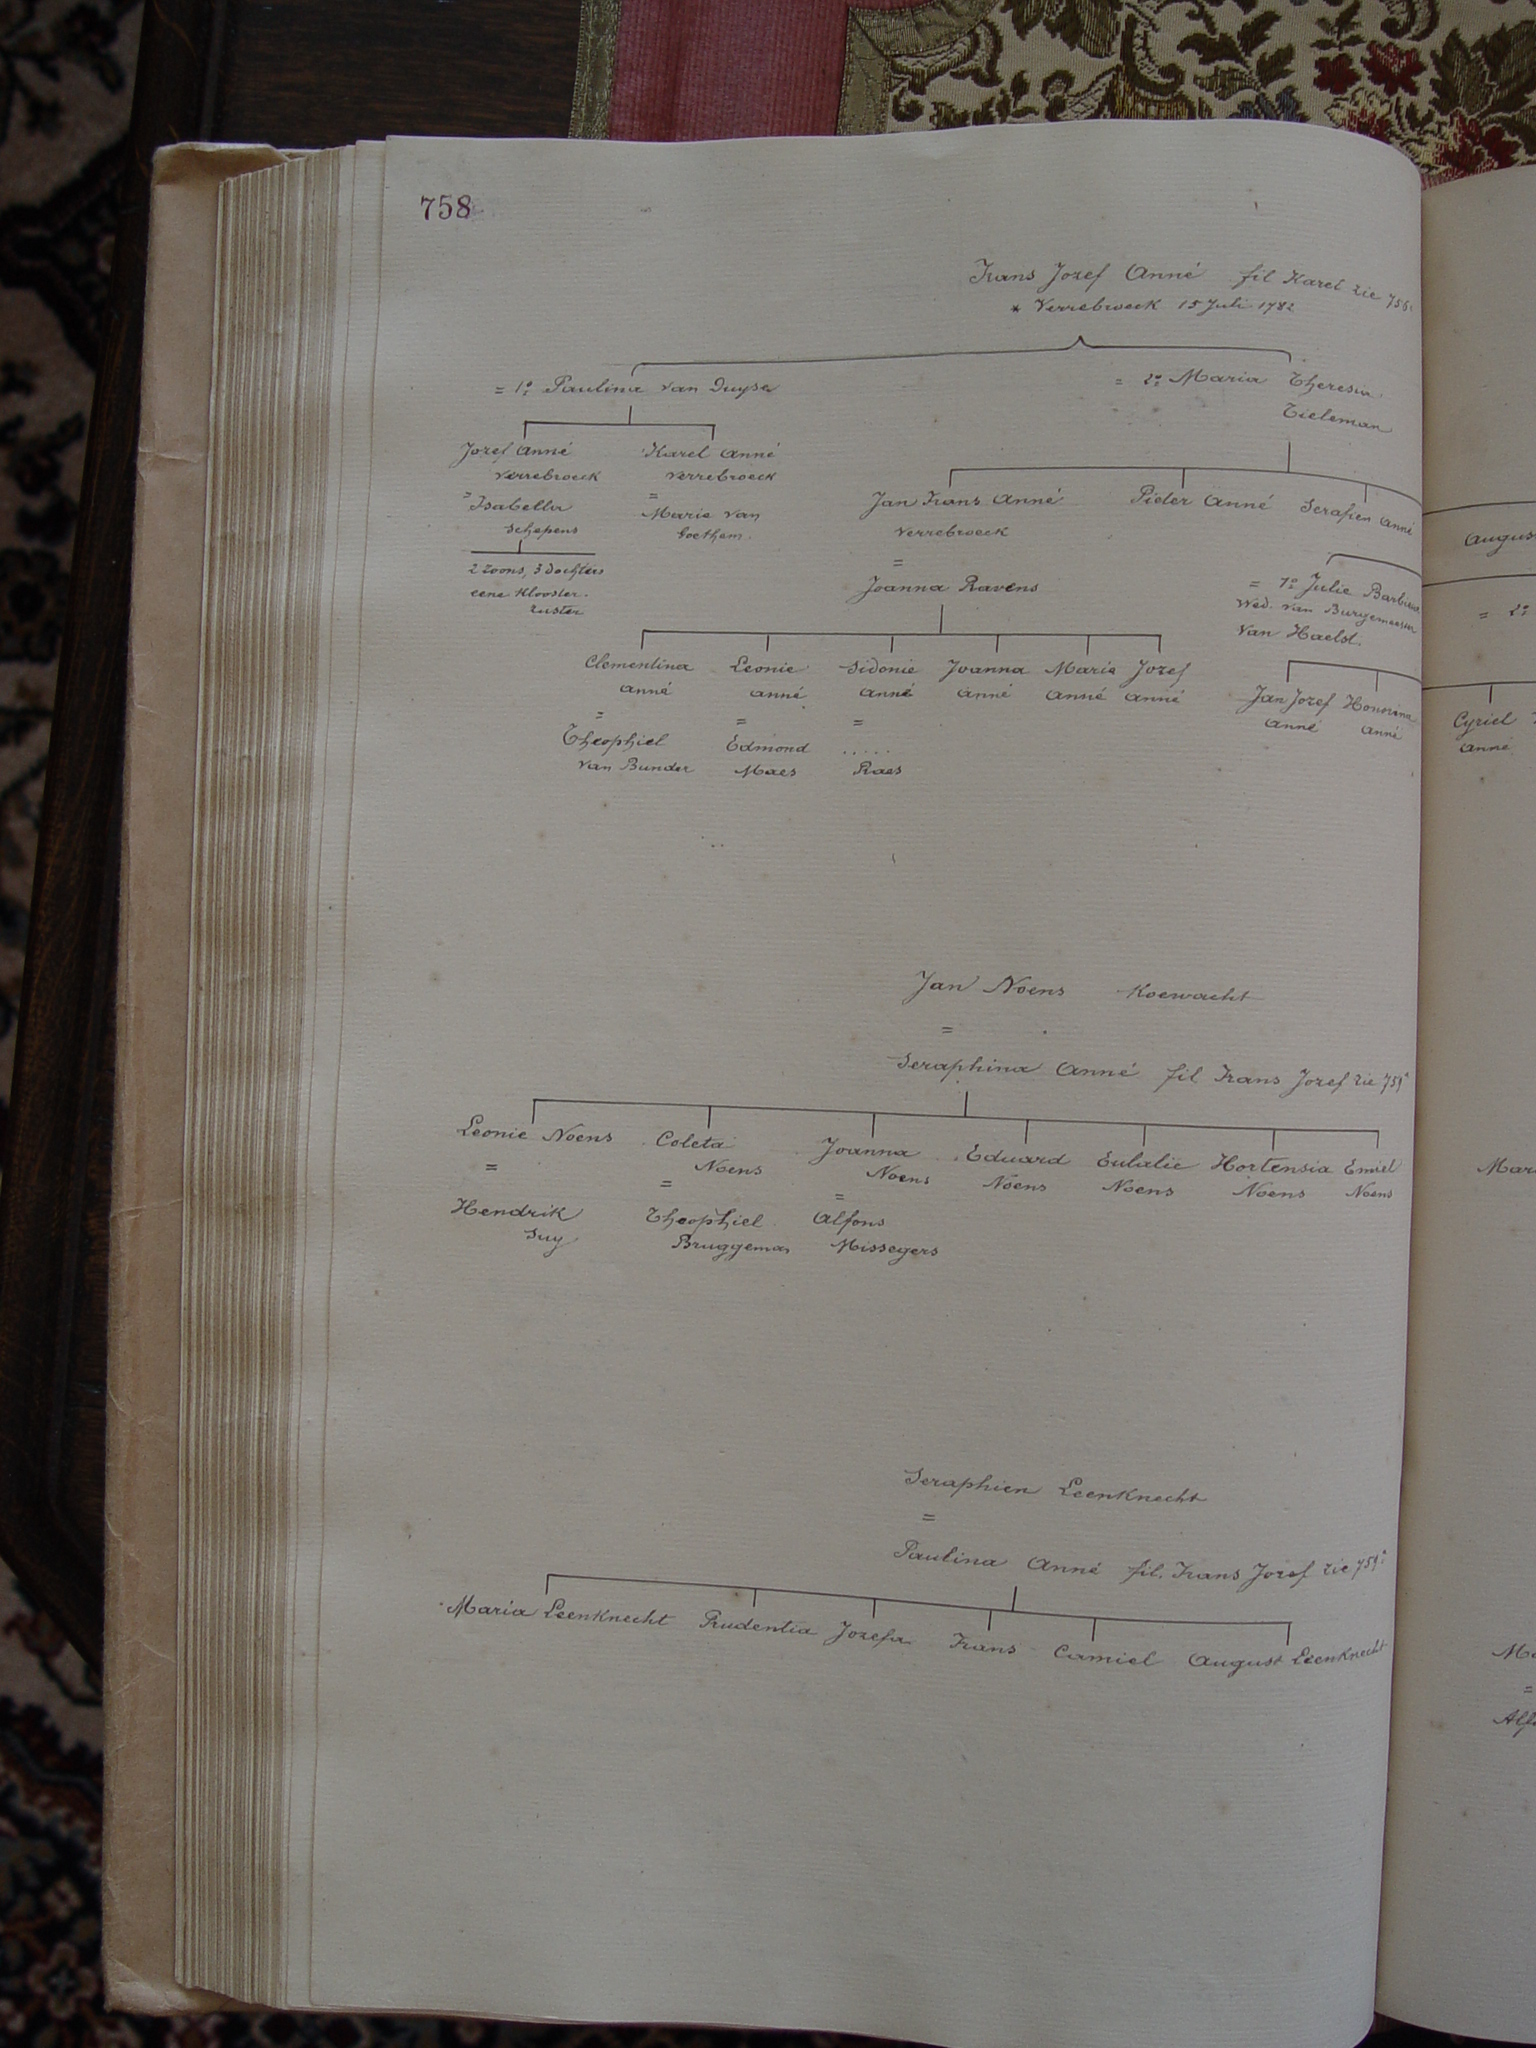 758
Frans Jozef Anné fil Karel zie 756
* Verrebroeck 15 Juli 1782
= 1º Paulina van Duyse
= 2º Maria Theresia
Tieleman
Jozef Anné Karel Anné
Verrebroeck Verrebroeck
= =
Isabella Maria Van
Schepens Goethem.
2 zoons, 3 dochters
eene klooster-
zuster
Jan Frans Anné Pieter Anné Serafien Anné
Verrebroeck
=
Joanna Ravens
= 1º Julie Barbi
Wed. van Burgemeester
Van Haelst.
Clementina Leonie Sidonie Joanna Maria Jozef
Anné Anné Anné Anné Anné Anné
= = =
Theophiel Edmond .....
Van Bunder Maes Raes
Jan Jozef Honorina
Anné Anné
August
= 2º
Cyriel
Anné
Jan Noens Koewacht
=
Seraphina Anné fil Frans Jozef zie 759
Leonie Noens Coleta Joanna Eduard Eulalie Hortensia Emiel
Noens Noens Noens Noens Noens Noens
= = =
Hendrik Theophiel Alfons
Suy Bruggeman Missegers
Mari
Seraphien Leenknecht
=
Paulina Anné fil. Frans Jozef zie 759
Maria Leenknecht Prudentia Jozefa Frans Camiel August Leenknecht
Ma
=
Alf